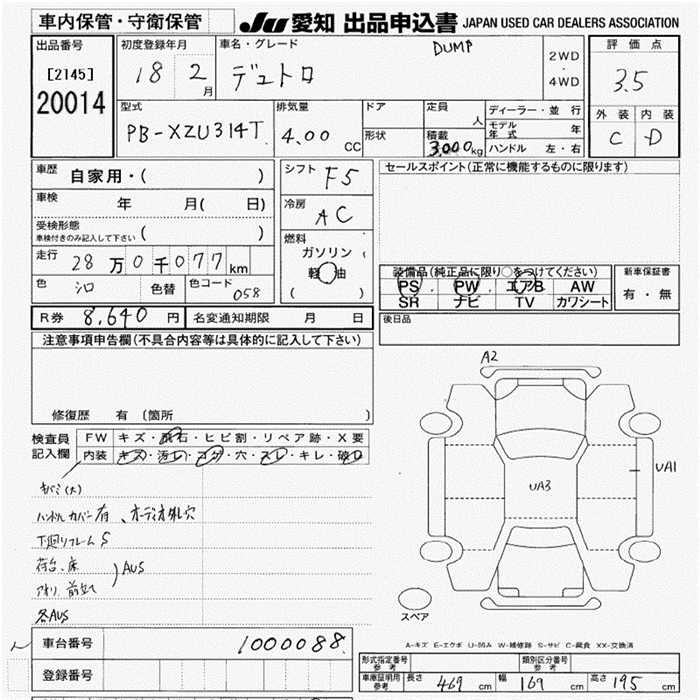 車内保管・守衛保管
JU 愛知 出品申込書 JAPAN USED CAR DEALERS ASSOCIATION
出品番号
[2145]
20014
初度登録年月
18 2月
車名・グレード
DUMP
デュトロ
2WD
・
4WD
評価点
3.5
外装 内装
C D
型式
PB-XZU314T
排気量
4.00 CC
ドア
形状
定員
人
積載
3,000kg
ディーラー・並行
モデル年式 年
ハンドル 左・右
車歴
自家用・( )
車検
年 月( 日)
受検形態
車検付きのみ記入して下さい ( )
走行
28万0千077km
色
シロ
色替
色コード
058
シフト
F5
冷房
AC
燃料
ガソリン
軽油
( )
セールスポイント(正常に機能するものに限ります)
装備品(純正品に限り○をつけてください)
PS PW エアB AW
SR ナビ TV カワシート
新車保証書
有・無
R券 8,640 円
名変通知期限 月 日
後日品
注意事項申告欄(不具合内容等は具体的に記入して下さい)
修復歴 有 〔箇所 〕
検査員
記入欄
FW キズ・飛石・ヒビ割・リペア跡・X要
内装 キズ・汚レ・コゲ・穴・スレ・キレ・破レ
キバミ(大)
ハンドルカバー有、オーディオ外し穴
下廻りフレームS
荷台、床
アオリ、前立て
AUS
各AUS
A2
UA3
UA1
スペア
A-キズ E-エクボ U-凹み W-補修跡 S-サビ C-腐食 XX-交換済
車台番号
1000088
登録番号
形式指定番号
参考
類別区分番号
参考
車庫証明用
参考
長さ 469 cm 幅 169 cm 高さ 195 cm